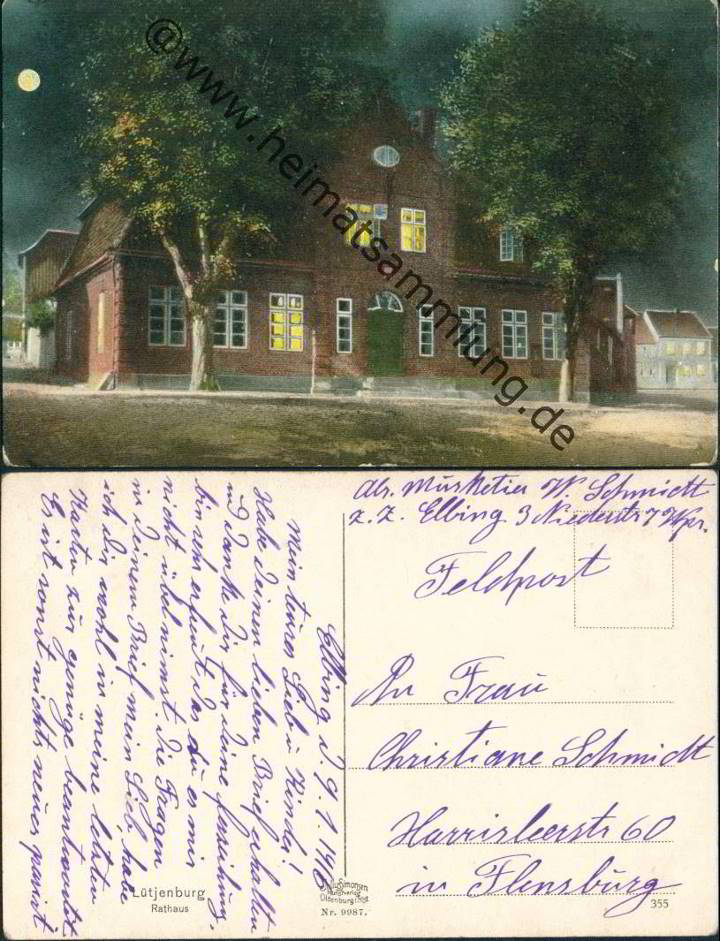 @www.heimatsammlung.de
Abs. Musketier W. Schmidt
z. Z. Elbing 3 Niederstr 7 Wpr.
Feldpost
An Frau
Christiane Schmidt
Harrisleerstr 60
in Flensburg
Elbing d 9.1.1918
Mein teures Lieb u Kinder!
Habe deinen lieben Brief erhalten
und danke dir für deine
bin sehr erfreut das du es mir
nicht übel nimst. Die Fragen
in deinem Brief mein Lieb, habe
ich dir wohl in meine letzte
Karten zur genüge beantwortet
Es ist sonst nichts neues passirt
Lütjenburg
Rathaus
Julius Simonsen
Kunstverlag
Oldenburg i. Holst.
Nr. 9987.
355